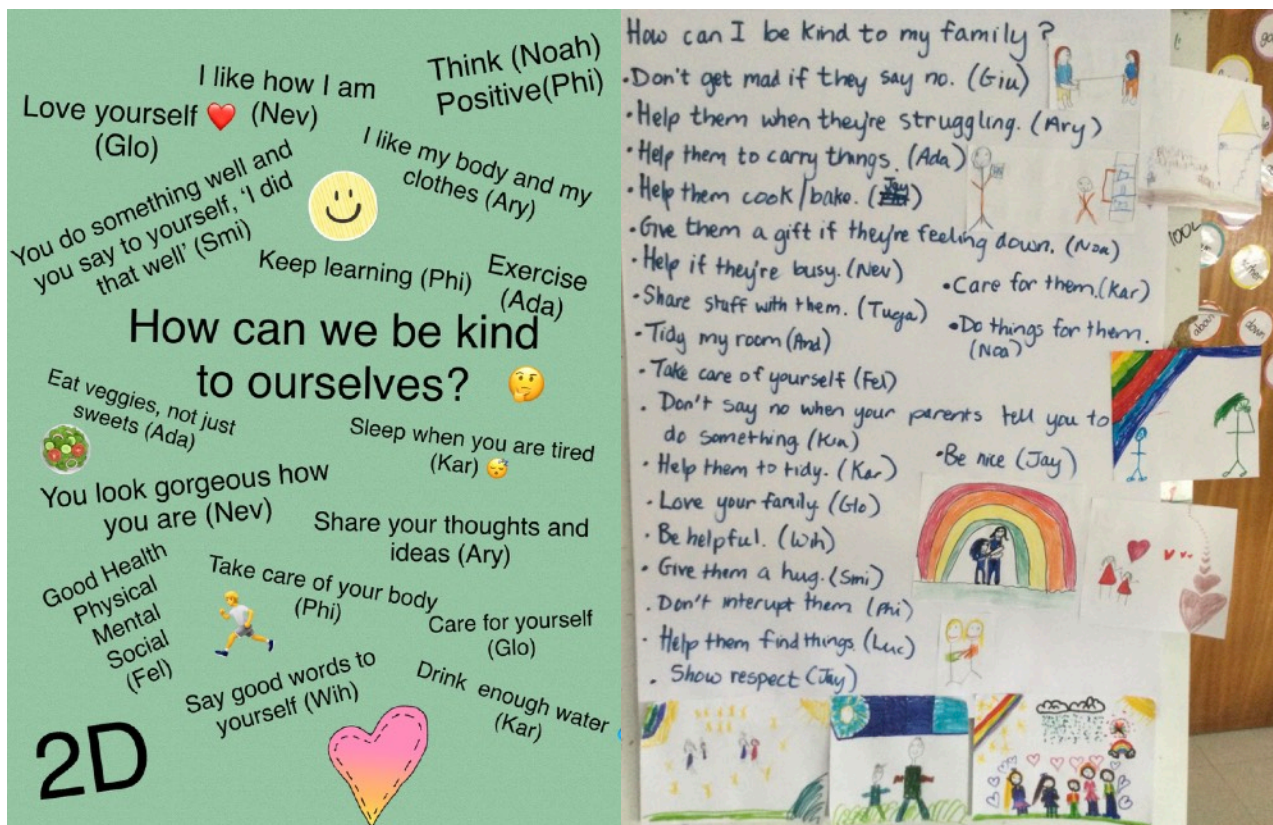 Think (Noah)
Positive(Phi)
I like how I am
(Nev)
Love yourself ❤️
(Glo)
I like my body and my
clothes (Ary)
You do something well and
you say to yourself, 'I did
that well' (Smi)
Keep learning (Phi)
Exercise
(Ada)
How can we be kind
to ourselves? 🤔
Eat veggies, not just
sweets (Ada)
Sleep when you are tired
(Kar) 😴
You look gorgeous how
you are (Nev)
Share your thoughts and
ideas (Ary)
Good Health
Physical
Mental
Social
(Fel)
Take care of your body
(Phi)
Care for yourself
(Glo)
Say good words to
yourself (Wih)
Drink enough water
(Kar)
2D
How can I be kind to my family?
•Don't get mad if they say no. (Giu)
•Help them when they're struggling. (Ary)
•Help them to carry things. (Ada)
•Help them cook/bake. (Jay)
•Give them a gift if they're feeling down. (Noa)
•Help if they're busy. (Nev)
•Care for them. (Kar)
•Share stuff with them. (Tuga)
•Do things for them.
(Noa)
•Tidy my room (And)
•Take care of yourself (Fel)
•Don't say no when your parents tell you to
do something (Kia)
•Help them to tidy. (Kar)
•Be nice (Jay)
•Love your family. (Glo)
•Be helpful. (Wih)
•Give them a hug. (Smi)
•Don't interupt them (Phi)
•Help them find things. (Luc)
•Show respect (Jay)
100L
about
down